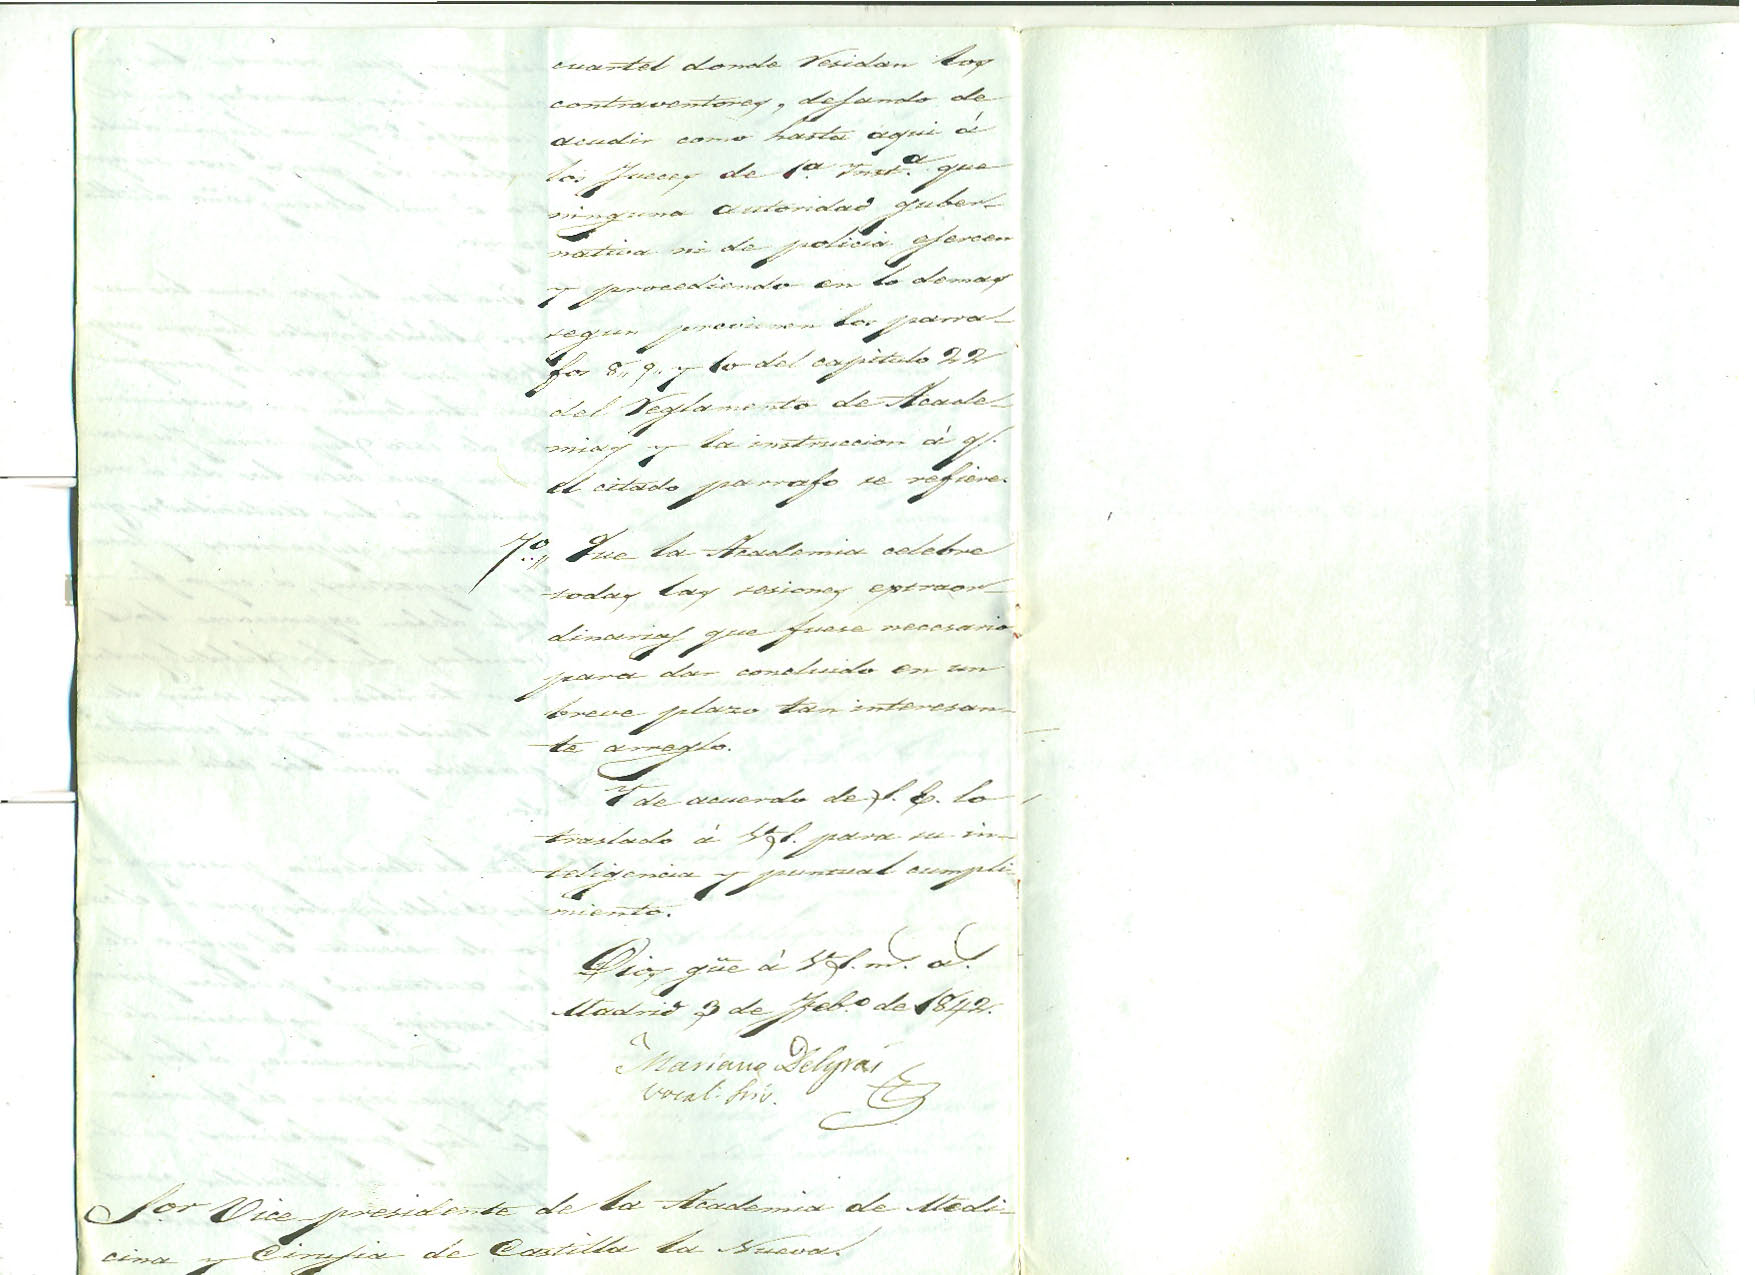 cuartel donde residan los
contraventores, dejando de
acudir como hasta aqui á
los Jueces de 1ª Instª que
ninguna autoridad guber-
nativa ni de policia ejercen
y procediendo en lo demas
segun previenen los parra-
fos 8,, 9,, y 10 del capitulo 22
del Reglamento de Acade-
mias y la instruccion á q.
el citado parrafo se refiere.
7º,, Que la Academia celebre
todas las sesiones extraor-
dinarias que fuese necesario
para dar concluido en un
breve plazo tan interesan-
te arreglo.
Y de acuerdo de S. E. lo
traslado á V.S. para su in-
teligencia y puntual cumpli-
miento.
Dios güe á V.S. m.s a.s
Madrid 3 de Feb.o de 1842.
Mariano Delgrás
Vocal Srio.
Sor Vice-presidente de la Academia de Medi-
cina y Cirujia de Castilla la Nueva.